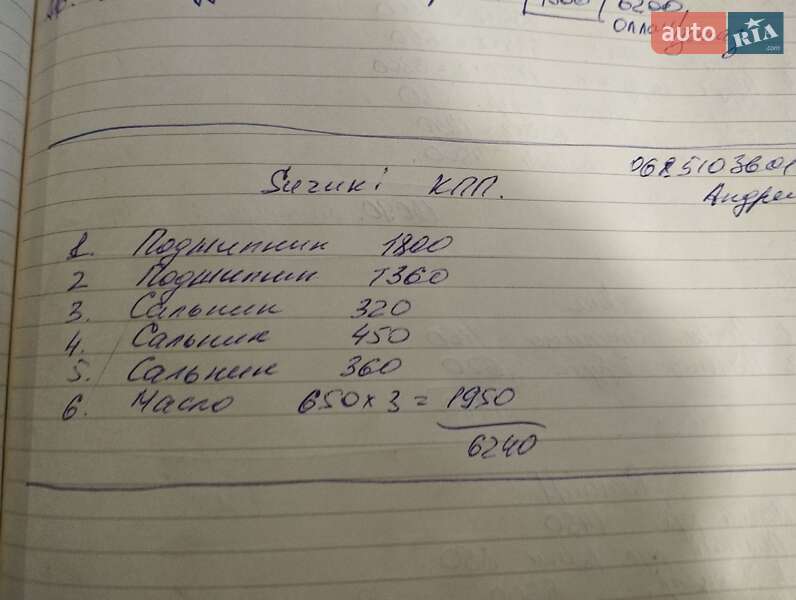 6200,
auto RIA .com
Suzuki КПП.
0685103601
Андрей
1. Подшипник 1800
2 Подшипник 1360
3. Сальник 320
4. Сальник 450
5. Сальник 360
6. Масло 650x3=1950
6240